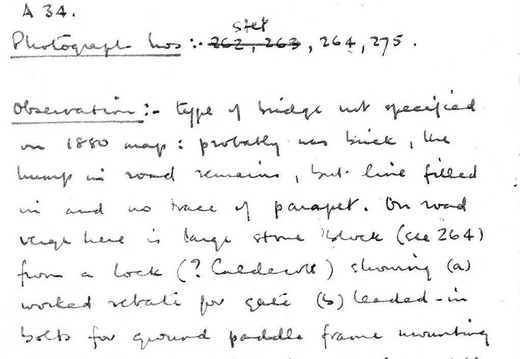 A 34.
stet
Photograph nos :- 262, 263, 264, 275.
Observation :- type of bridge not specified
on 1880 map: probably was brick, the
hump in road remains, but line filled
in and no trace of parapet. On road
verge here is large stone block (see 264)
from a lock (? Caldecott) showing (a)
worked rebate for gate (b) leaded-in
bolts for ground paddle frame mounting